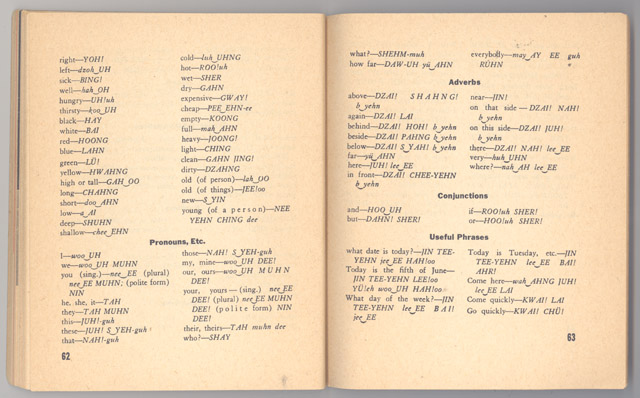 right—YOH!
left—dzoh_UH
sick—BING!
well—hah_OH
hungry—UH!uh
thirsty—koo_UH
black—HAY
white—BAI
red—HOONG
blue—LAHN
green—LÜ!
yellow—HWAHNG
high or tall—GAH_OO
long—CHAHNG
short—doo_AHN
low—a_AI
deep—SHUHN
shallow—chee_EHN
cold—luh_UHNG
hot—ROO!uh
wet—SHER
dry—GAHN
expensive—GWAY!
cheap—PEE_EHN-ee
empty—KOONG
full—mah_AHN
heavy—JOONG!
light—CHING
clean—GAHN JING!
dirty—DZAHNG
old (of person)—lah_OO
old (of things)—JEE!oo
new—S_YIN
young (of a person)—NEE
YEHN CHING dee
Pronouns, Etc.
I—woo_UH
we—woo_UH MUHN
you (sing.)—nee_EE (plural)
nee_EE MUHN; (polite form)
NIN
he, she, it—TAH
they—TAH MUHN
this—JUH!-guh
these—JUH! S_YEH-guh
that—NAH!-guh
those—NAH! S_YEH-guh
my, mine—woo_UH DEE!
our, ours—woo_UH MUHN
DEE!
your, yours—(sing.) nee_EE
DEE! (plural) nee_EE MUHN
DEE! (polite form) NIN
DEE!
their, theirs—TAH muhn dee
who?—SHAY
62
what?—SHEHM-muh
how far—DAW-UH yü_AHN
everybody—may_AY EE guh
RÜHN
Adverbs
above—DZAI! SHAHNG!
b_yehn
again—DZAI! LAI
behind—DZAI! HOH! b_yehn
beside—DZAI! PAHNG b_yehn
below—DZAI! S_YAH! b_yehn
far—yü_AHN
here—JUH! lee_EE
in front—DZAI! CHEE-YEHN
b_yehn
near—JIN!
on that side—DZAI! NAH!
b_yehn
on this side—DZAI! JUH!
b_yehn
there—DZAI! NAH! lee_EE
very—huh_UHN
where?—nah_AH lee_EE
Conjunctions
and—HOO_UH
but—DAHN! SHER!
if—ROO!uh SHER!
or—HOO!uh SHER!
Useful Phrases
what date is today?—JIN TEE-
YEHN jee_EE HAH!oo
Today is the fifth of June—
JIN TEE-YEHN LEE!oo
YÜ!eh woo_UH HAH!oo
What day of the week?—JIN
TEE-YEHN lee_EE BAI!
jee_EE
Today is Tuesday, etc.—JIN
TEE-YEHN lee_EE BAI!
AHR!
Come here—wah_AHNG JUH!
lee_EE LAI
Come quickly—KWAI! LAI
Go quickly—KWAI! CHÜ!
63